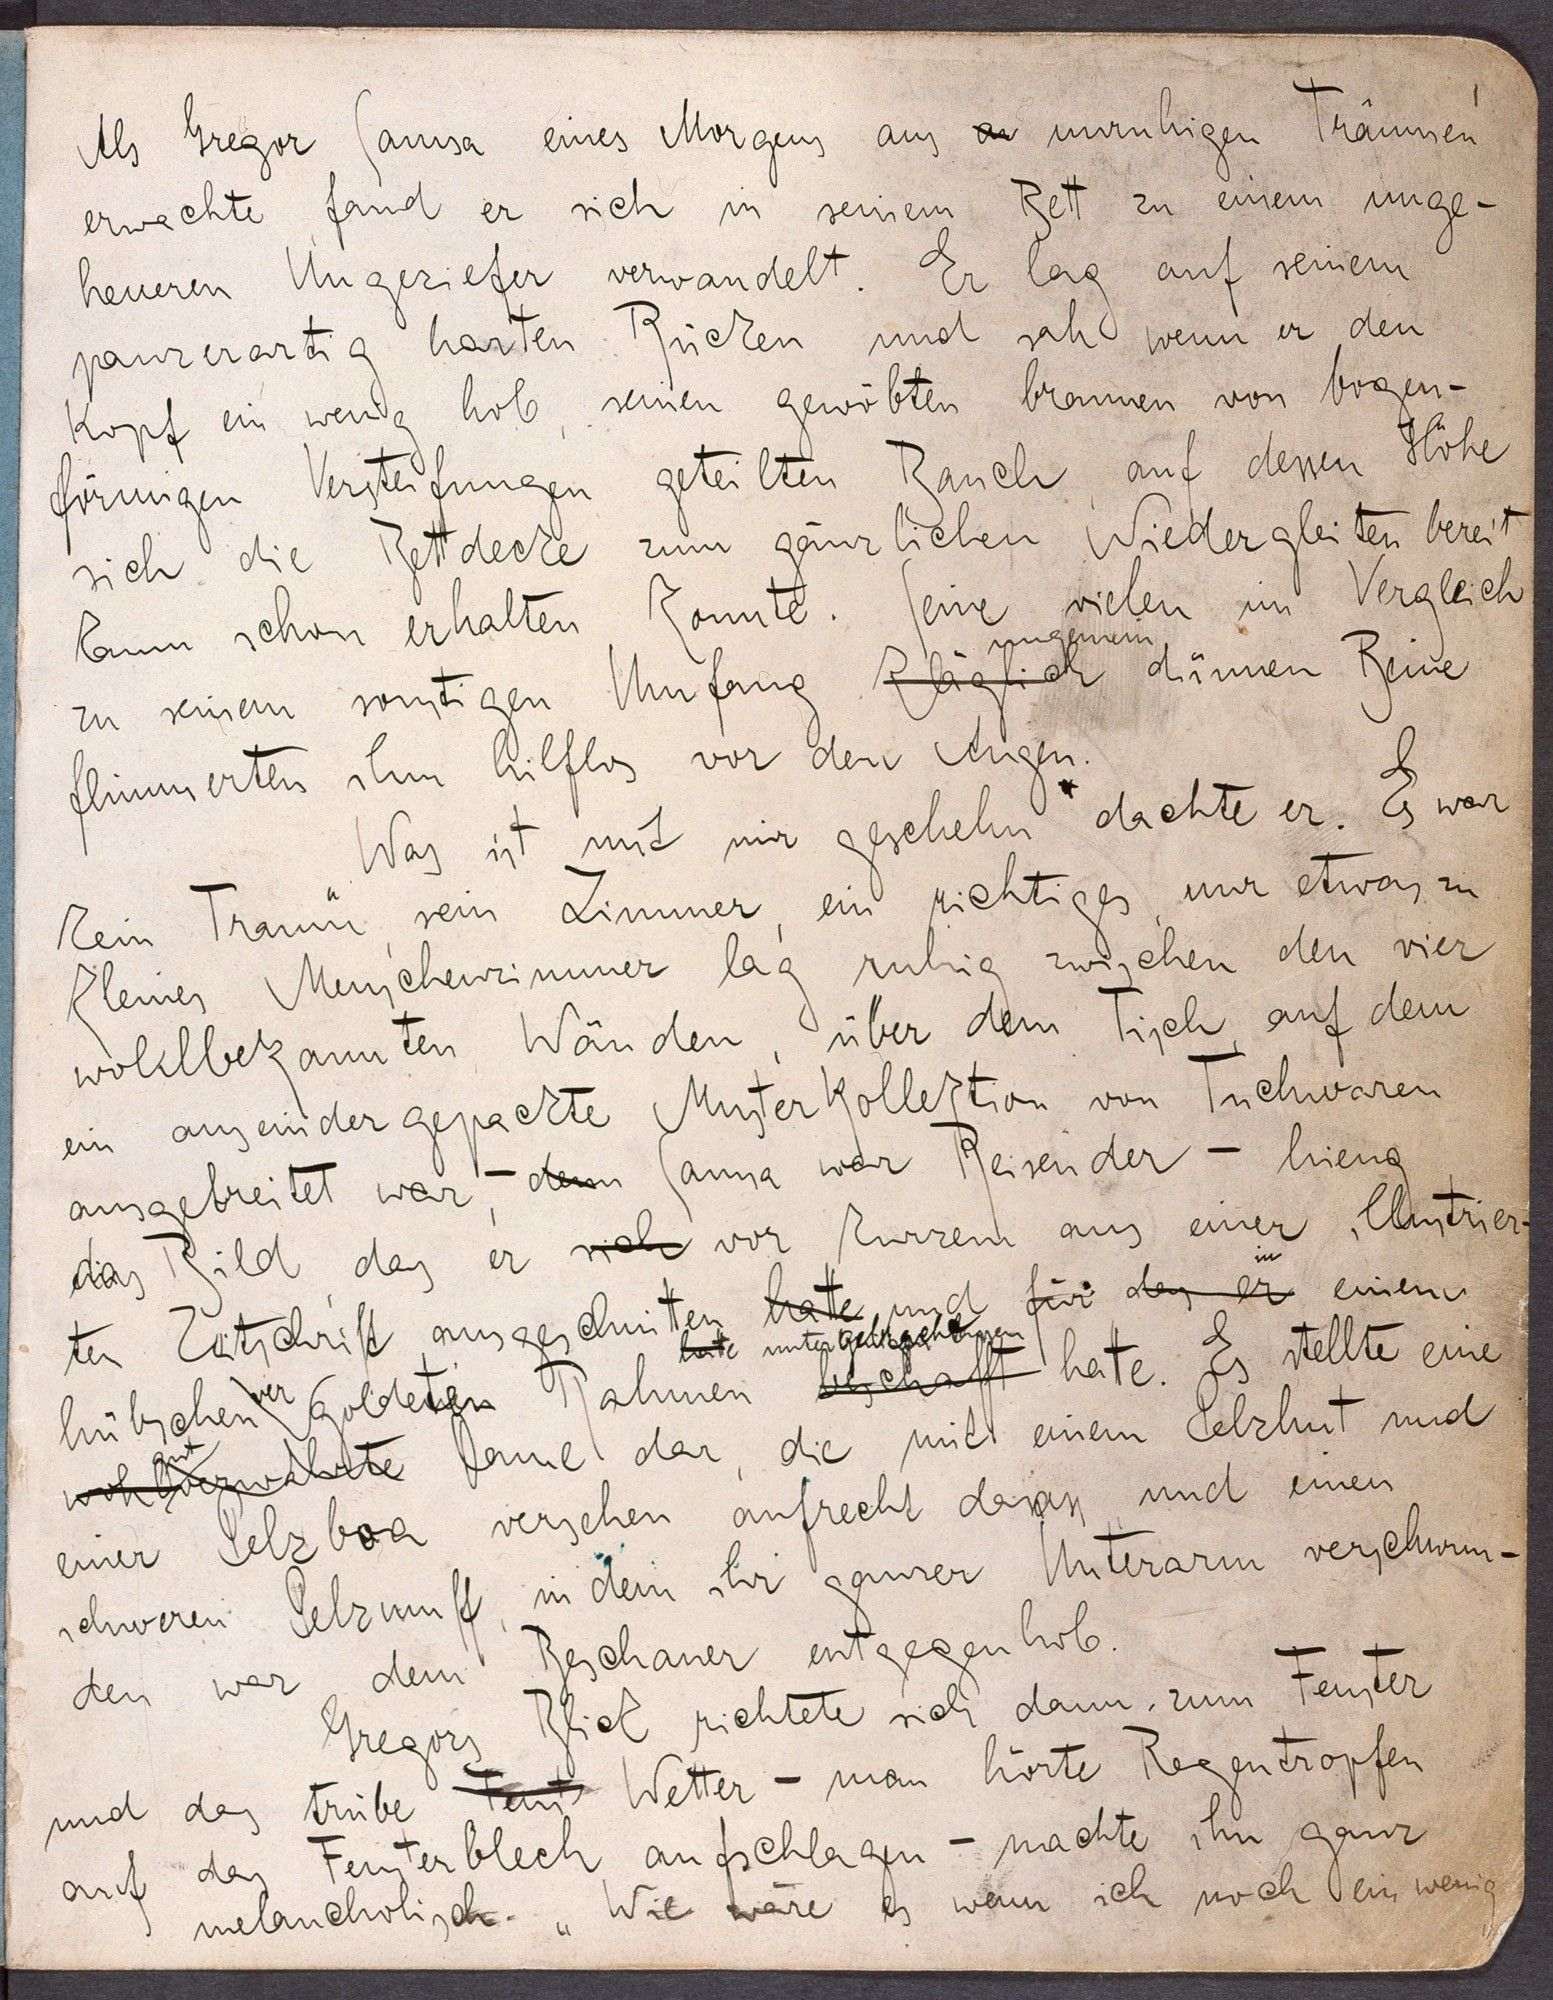 Als Gregor Samsa eines Morgens aus unruhigen Träumen
erwachte fand er sich in seinem Bett zu einem unge-
heueren Ungeziefer verwandelt. Er lag auf seinem
panzerartig harten Rücken und sah wenn er den
Kopf ein wenig hob, seinen gewöbten braunen von bogen-
förmigen Versteifungen geteilten Bauch, auf dessen Höhe
sich die Bettdecke zum gänzlichen Niedergleiten bereit
kaum schon erhalten konnte. Seine vielen im Vergleich
ungemein
zu seinem sonstigen Umfang kläglich dünnen Beine
flimmerten ihm hilflos vor den Augen.
Was ist mit mir geschehn" dachte er. Es war
kein Traum, sein Zimmer, ein richtiges, nur etwas zu
kleines Menschenzimmer lag ruhig zwischen den vier
wohlbekannten Wänden, über dem Tisch, auf dem
ein auseindergepackte Musterkollektion von Tuchwaren
ausgebreitet war, – denn Samsa war Reisender – hieng
das Bild, das er sich vor kurzem aus einer illustrier-
in
ten Zeitschrift ausgeschnitten hatte und für das er einem
hatte untergebracht
hübschen ver goldeten Rahmen beschafft hatte. Es stellte eine
gut
wohlverwahrte Dame dar, die mit einem Pelzhut und
einer Pelzboa versehen aufrecht dasass und einen
schweren Pelzmuff, in dem ihr ganzer Unterarm verschwun-
den war dem Beschauer entgegenhob.
Gregors Blick richtete sich dann zum Fenster
und das trübe Wetter – man hörte Regentropfen
auf das Fensterblech aufschlagen – machte ihn ganz
melancholisch. „Wie wäre es wenn ich noch ein wenig